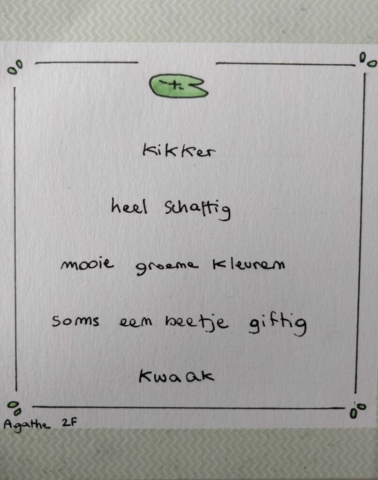 Kikker
heel schattig
mooie groene kleuren
soms een beetje giftig
Kwaak
Agathe 2F